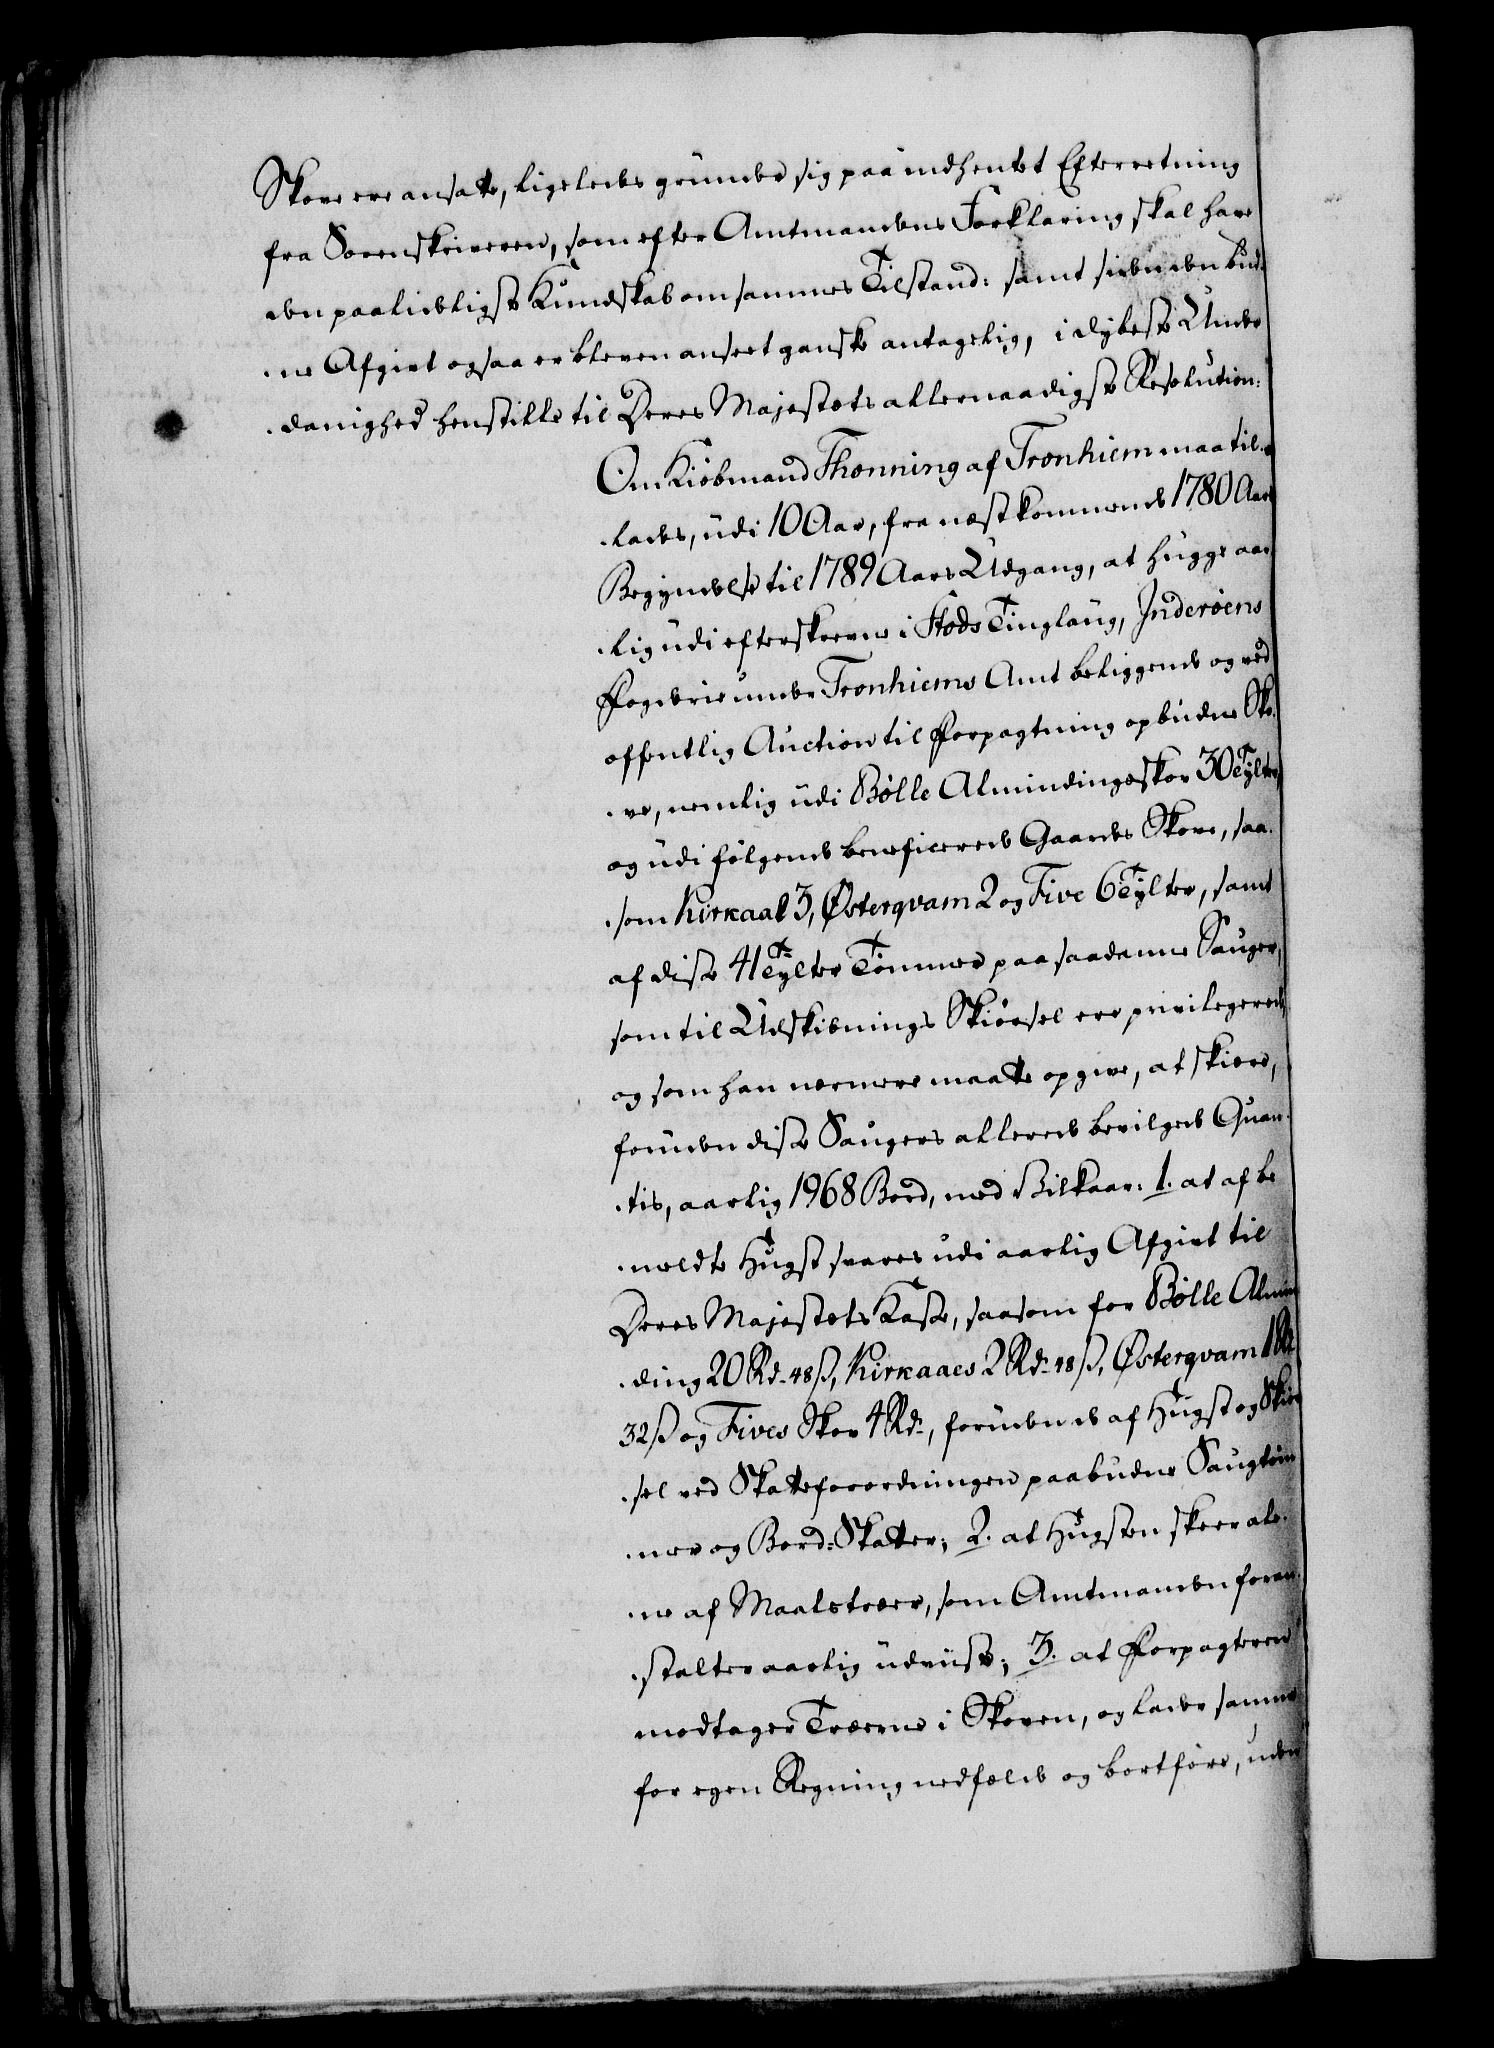 Skove ere ansatte, ligeledes grunder sig paa indhentet Efterretning
fra Sorenskriveren, som efter Amtmandens Forklaring skal have
den paalideligste Kundskab om sammes Tilstand: samt siden den bud-
-ne Afgivt ogsaa er bleven anseet ganske antagelig, i dybeste Under
-danighed henstille til Deres Majestæts allernaadigste Resolution:
Om Kiöbmand Thonning af Tronhiem maa til-
-lades, udi 10 Aar, fra næstkommende 1780 Aars
Begyndelse til 1789 Aars Udgang, at hugge aar-
-lig udi efterskrevne i Stods Tinglaug, Inderöens
Fogderie under Tronhiems Amt beliggende og ved
offentlig Auction til Forpagtning opbudne Sko-
-ve, nemlig udi Bölle Almindingsskov 30 Tylter,
og udi følgende beneficerede Gaardes Skove, saa-
-som Kirkaal 3, Østerqvam 2 og Five 6 Tylter, samt
af disse 41 Tylter Tömmer paa saadanne Sauger,
som til Udskibnings Skiørsel ere privilegerede,
og som han nærmere maatte opgive, at skiære,
foruden disse Saugers allerede bevilgede Quan-
-tis, aarlig 1968 Bord, med Vilkaar: 1. at af be
-meldte Hugst svares udi aarlig Afgivt til
Deres Majestæts Kasse, saasom for Bölle Almin
-ding 20 Rd. 48 ß, Kirkaaes 2 Rd. 48 ß, Østerqvam 1 Rd.
32 ß og Fives Skov 4 Rd., foruden de af Hugst og Skiør
-sel ved Skatteforordningen paabudne Saugtöm
-mer og Bord-Skatter; 2. at Hugsten skeer ale-
-ne af Maalstræer, som Amtmanden foran-
-stalter aarlig udviiste; 3. at Forpagteren
modtager Træerne i Skoven, og lader samme
for egen Regning nedfælde og bortføre, uden